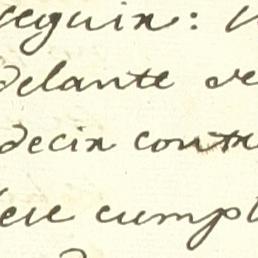 seguir:
delante se
decir contr
ere cumpl